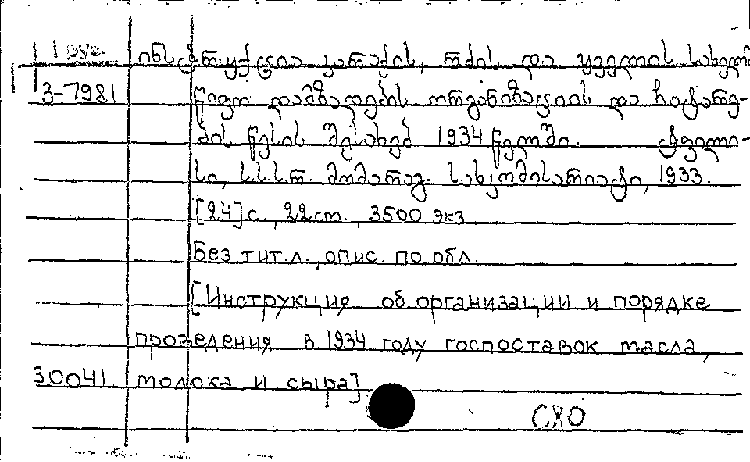 ინსტრუქცია კარაქის, რძის და ყველის სახელმ-
3-7981 წიფო დამზადების ორგანიზაციის და ჩატარე-
ბის წესის შესახებ 1934 წელში. ტფილი-
სი, ს.ს.ს.რ. მომარაგ. სახკომისარიატი, 1933.
[24] с, 22 ст. 3500 экз
Без тит.л., опис. по обл.
[Инструкция об организации и порядке
проведения в 1934 году госпоставок масла,
30041 молока и сыра]
СХО